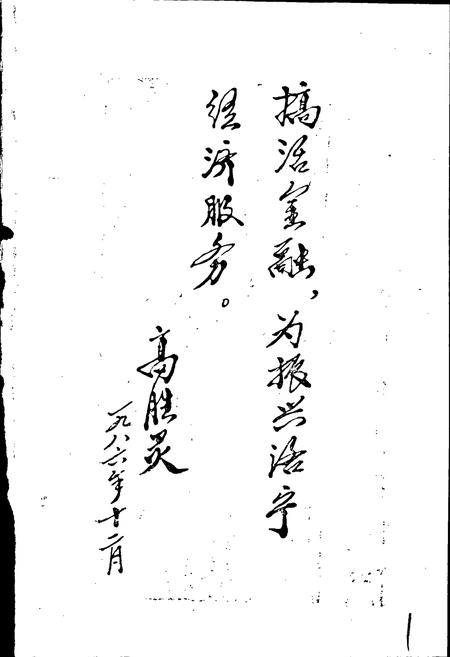 搞活金融，为振兴洛宁
经济服务。
高胜灵
一九八六年十二月
1